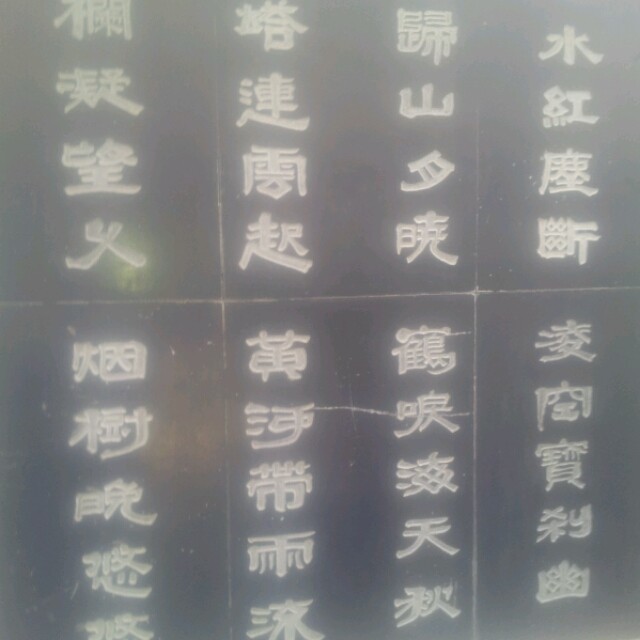 水紅塵斷凌空寶刹幽
歸山月曉鶴唳海天秋
塔連雲起黃河帶雨流
欄凝望久烟樹晚悠悠